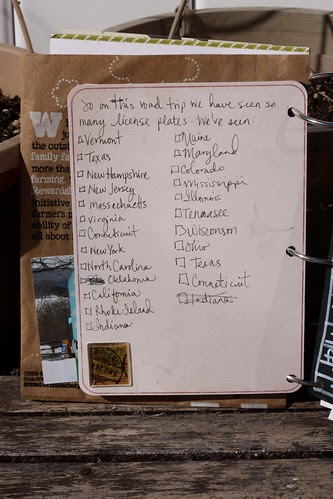 So on this road trip we have seen so
many license plates. We've seen:
Vermont
Texas
New Hampshire
New Jersey
Massachusetts
Virginia
Connecticut
New York
North Carolina
Oklahoma
California
Rhode Island
Indiana
Maine
Maryland
Colorado
Mississippi
Illinois
Tennessee
Wisconsin
Ohio
Texas
Conneticut
Indiana
W
the outst
family fa
more than
farming.
Stewardsh
initiative
farmers
ability of
all about